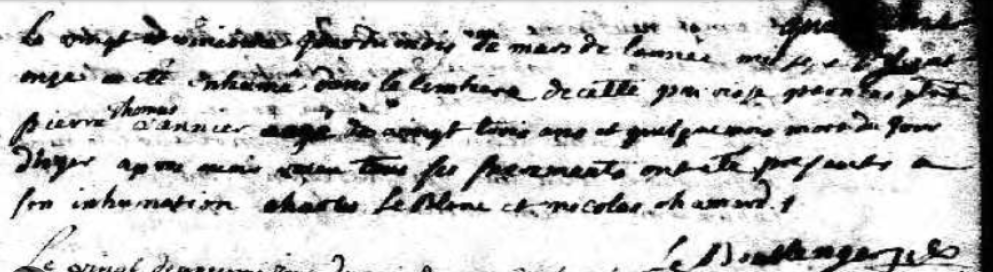 Le vingt unieme jour du mois de mars de l'année mil sept cent
onze a eté enhumé dans le cimtiere de cette paroisse par nous
pierre thomas vannier aagé de vingt trois ans et quelque mois mort du jour
d'hyer apres avoir receu tous ses sacrements ont eté presents a
son inhumation charles Le Blanc et nicolas chamard.
Le Boullenger
Le vingt deuxieme jour